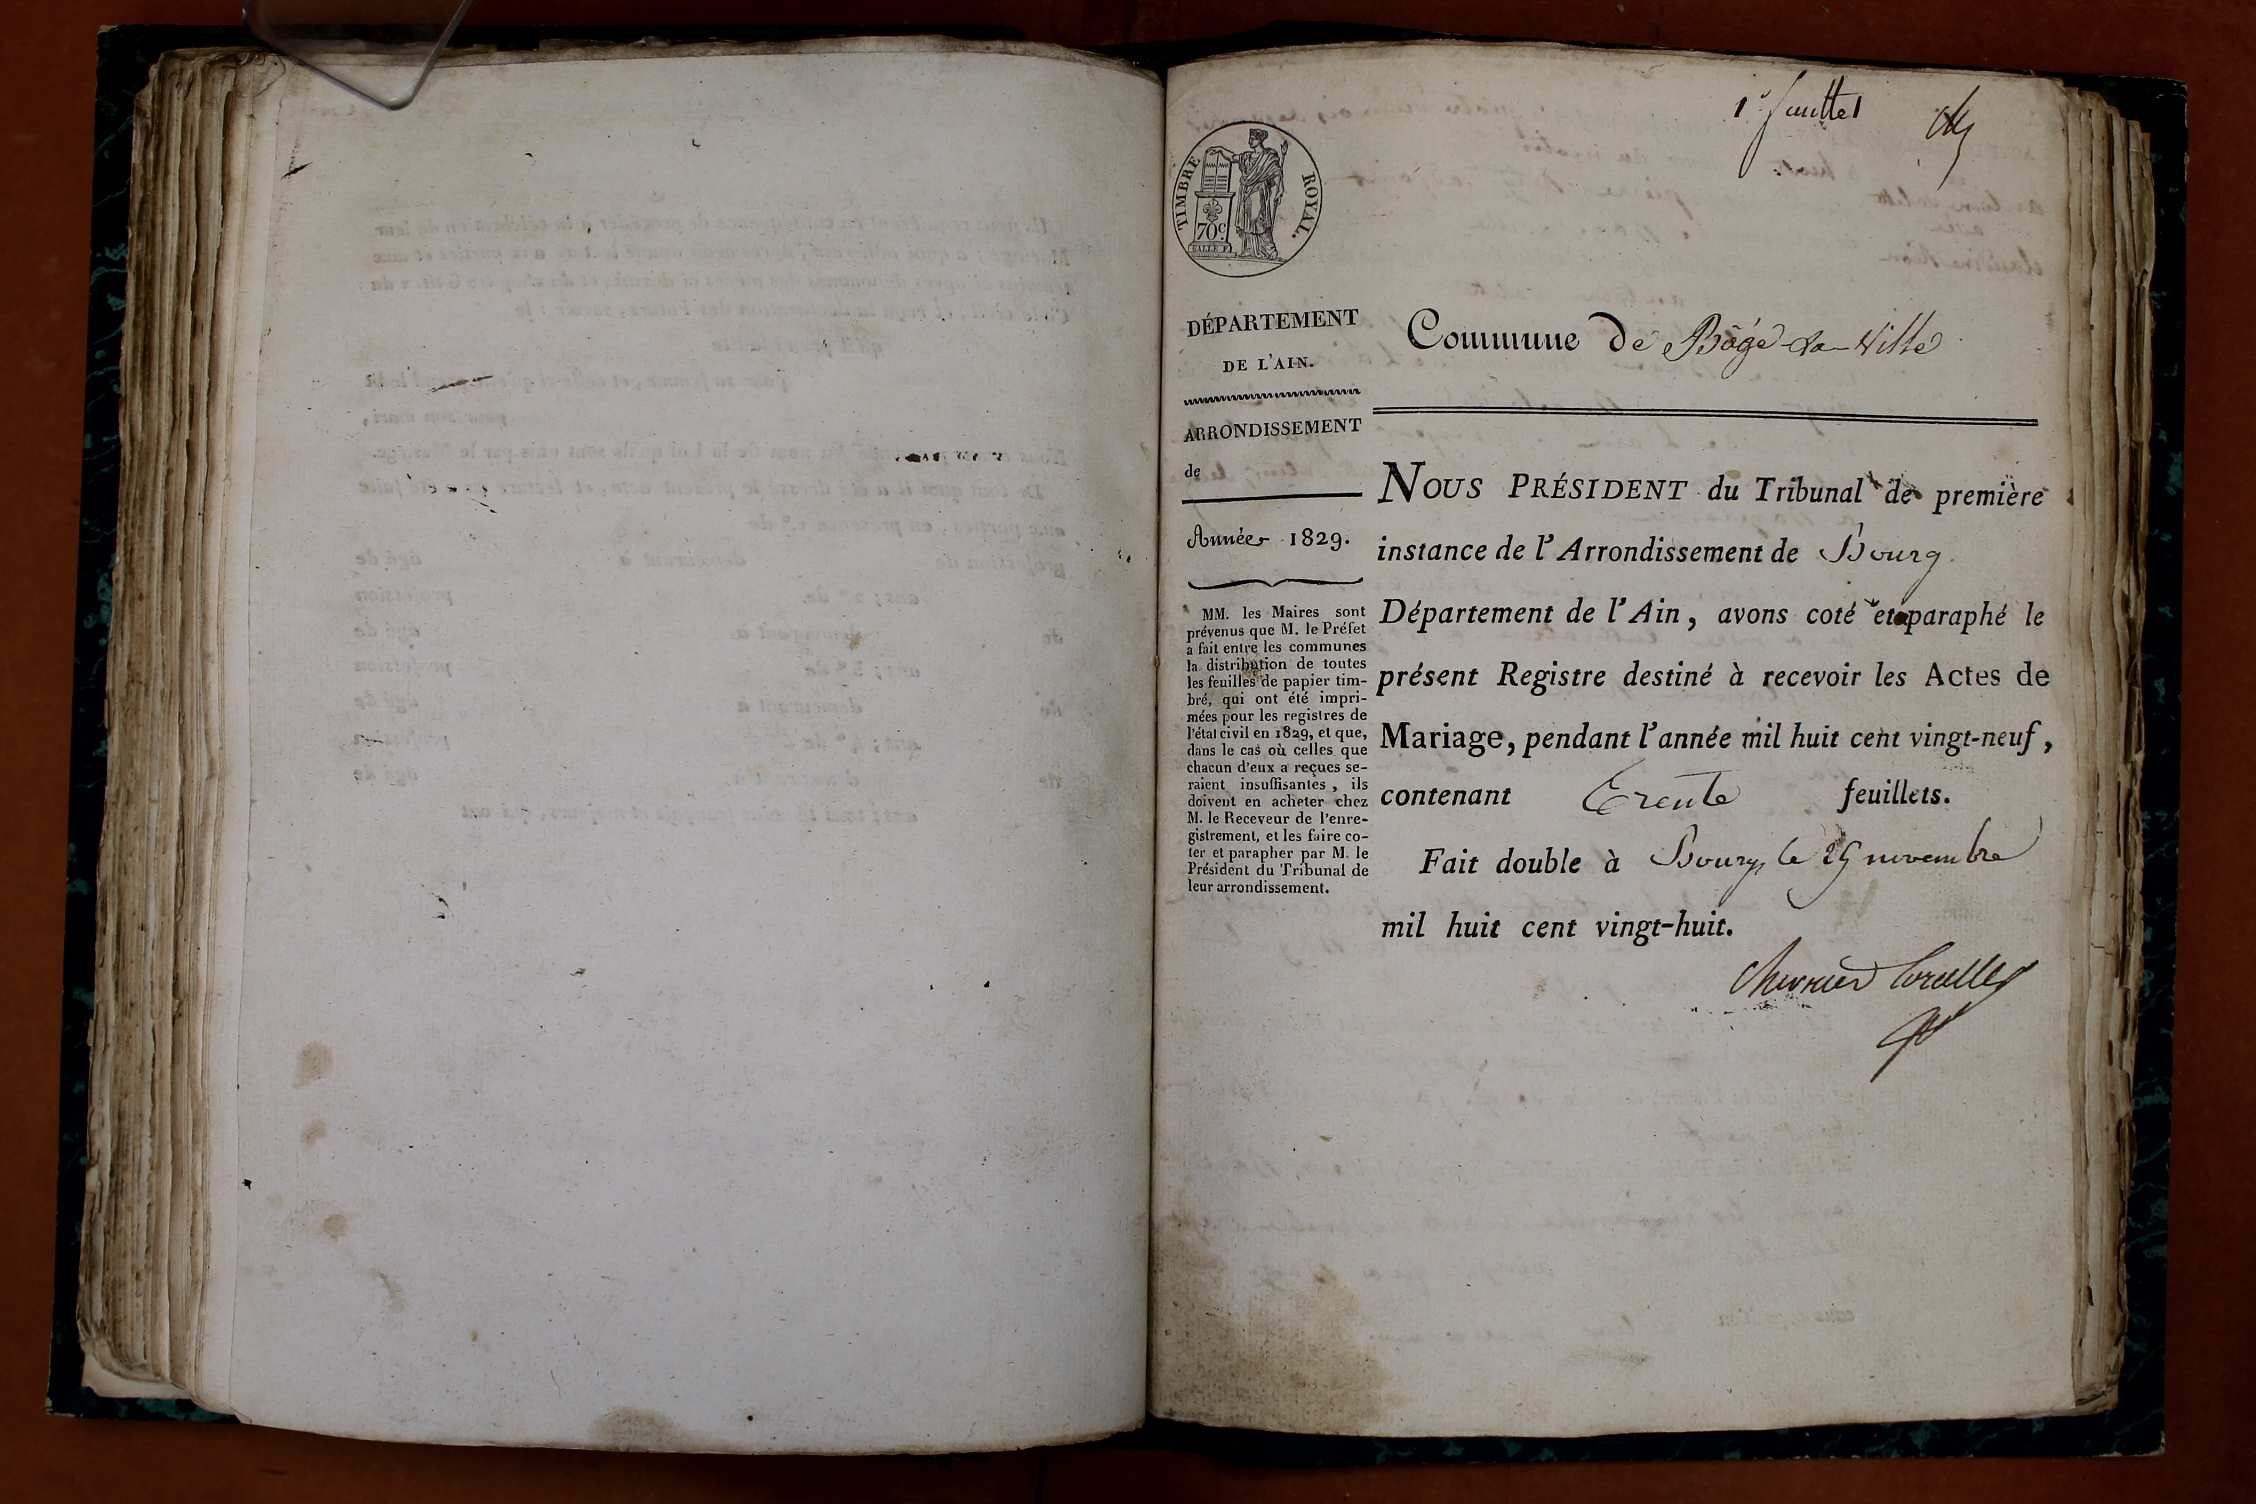 1er feuillet
TIMBRE ROYAL.
70c.
DÉPARTEMENT
DE L'AIN.
ARRONDISSEMENT
de
Année 1829.
MM. les Maires sont
prévenus que M. le Préfet
a fait entre les communes
la distribution de toutes
les feuilles de papier tim-
bré, qui ont été impri-
mées pour les registres de
l'état civil en 1829, et que,
dans le cas où celles que
chacun d'eux a reçues se-
raient insuffisantes, ils
doivent en acheter chez
M. le Receveur de l'enre-
gistrement, et les faire co-
ter et parapher par M. le
Président du Tribunal de
leur arrondissement.
Commune de Bâgé-la-Ville
NOUS PRÉSIDENT du Tribunal de première
instance de l'Arrondissement de Bourg
Département de l'Ain, avons coté et paraphé le
présent Registre destiné à recevoir les Actes de
Mariage, pendant l'année mil huit cent vingt-neuf,
contenant Trente feuillets.
Fait double à Bourg, le 25 novembre
mil huit cent vingt-huit.